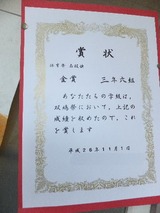 賞状
金賞 三年六組
あなたたちの学級は、
双鳩祭において、上記の
成績を収めたので、これ
を賞します
平成20年11月1日